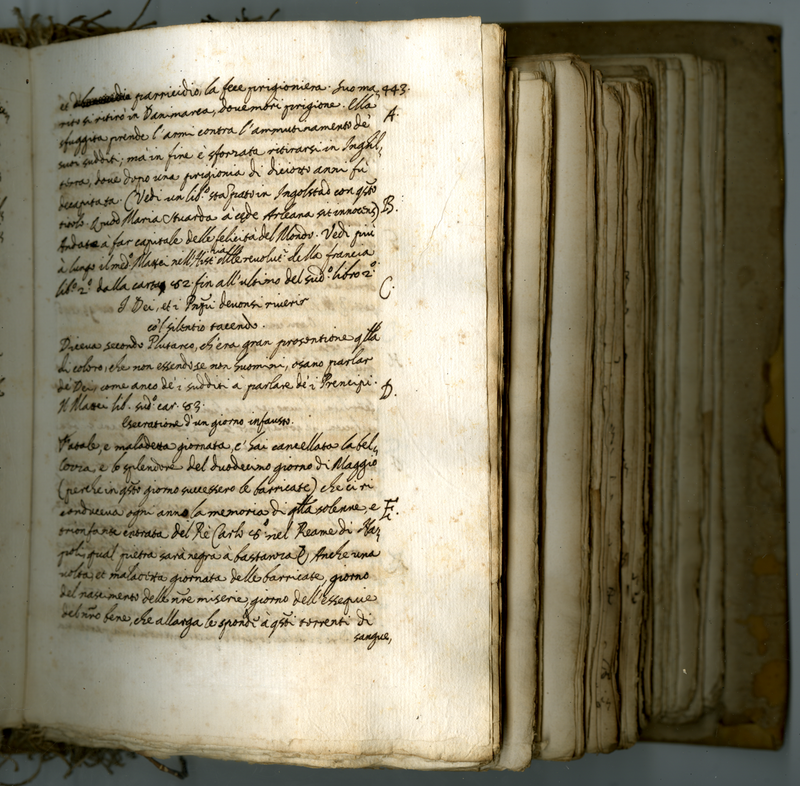 et d'homicidio parricidio, la fece prigioniera. Suo ma, 443.
rito si ritirò in Danimarca, dove morì prigione. Ella
sfuggita prende l'armi contra l'ammutinamento de' A.
suoi sudditi; mà in fine è sforzata retirarsi in Inghil,
terra, dove dopo una prigionia di diciotto anni fù
decapitata. (Vedi un lib.º stāpato in Ingolstad con q̄sto
titolo. Maria Stuarda à cæde Arleana sit innocens) B.
Andate à far capitale delle felicità del Mondo. Vedi più
à lungo il med.º Mattei nell'Hist.ria delle revolut.i della francia
lib.º 2.º dalla carta 82. fin all'ultimo del sud.º libro 2.º
I Dei, et i Prn̄pi devonsi riverir C.
cò 'l silentio tacendo.
Diceva secondo Plutarco, ch'era gran prosontione q̄lla
di coloro, che non essendo se non huomini, osano parlar
de' Dei, come anco de' i sudditi à parlare de' i Prencipi. D.
Il Mattei lib. sud.º car. 83.
Esecratione d'un giorno infausto.
Fatale, e maladetta giornata, c'hai cancellata la bel,
lezza, e lo splendore del duodecimo giorno di Maggio
(perche in q̄sto giorno successero le barricate) che ci ri
conduceva ogni anno la memoria di q̄lla solenne, e E.
trionfante entrata del Rè Carlo 8.º nel Reame di Na,
poli, qual pietra sarà negra à bastanza Anche una
volta, et maladetta giornata delle barricate, giorno
del nascimento delle nr̄e miserie, giorno dell'essequie
del nr̄o bene, che allarga le sponde à q̄sti torrenti di
sangue,